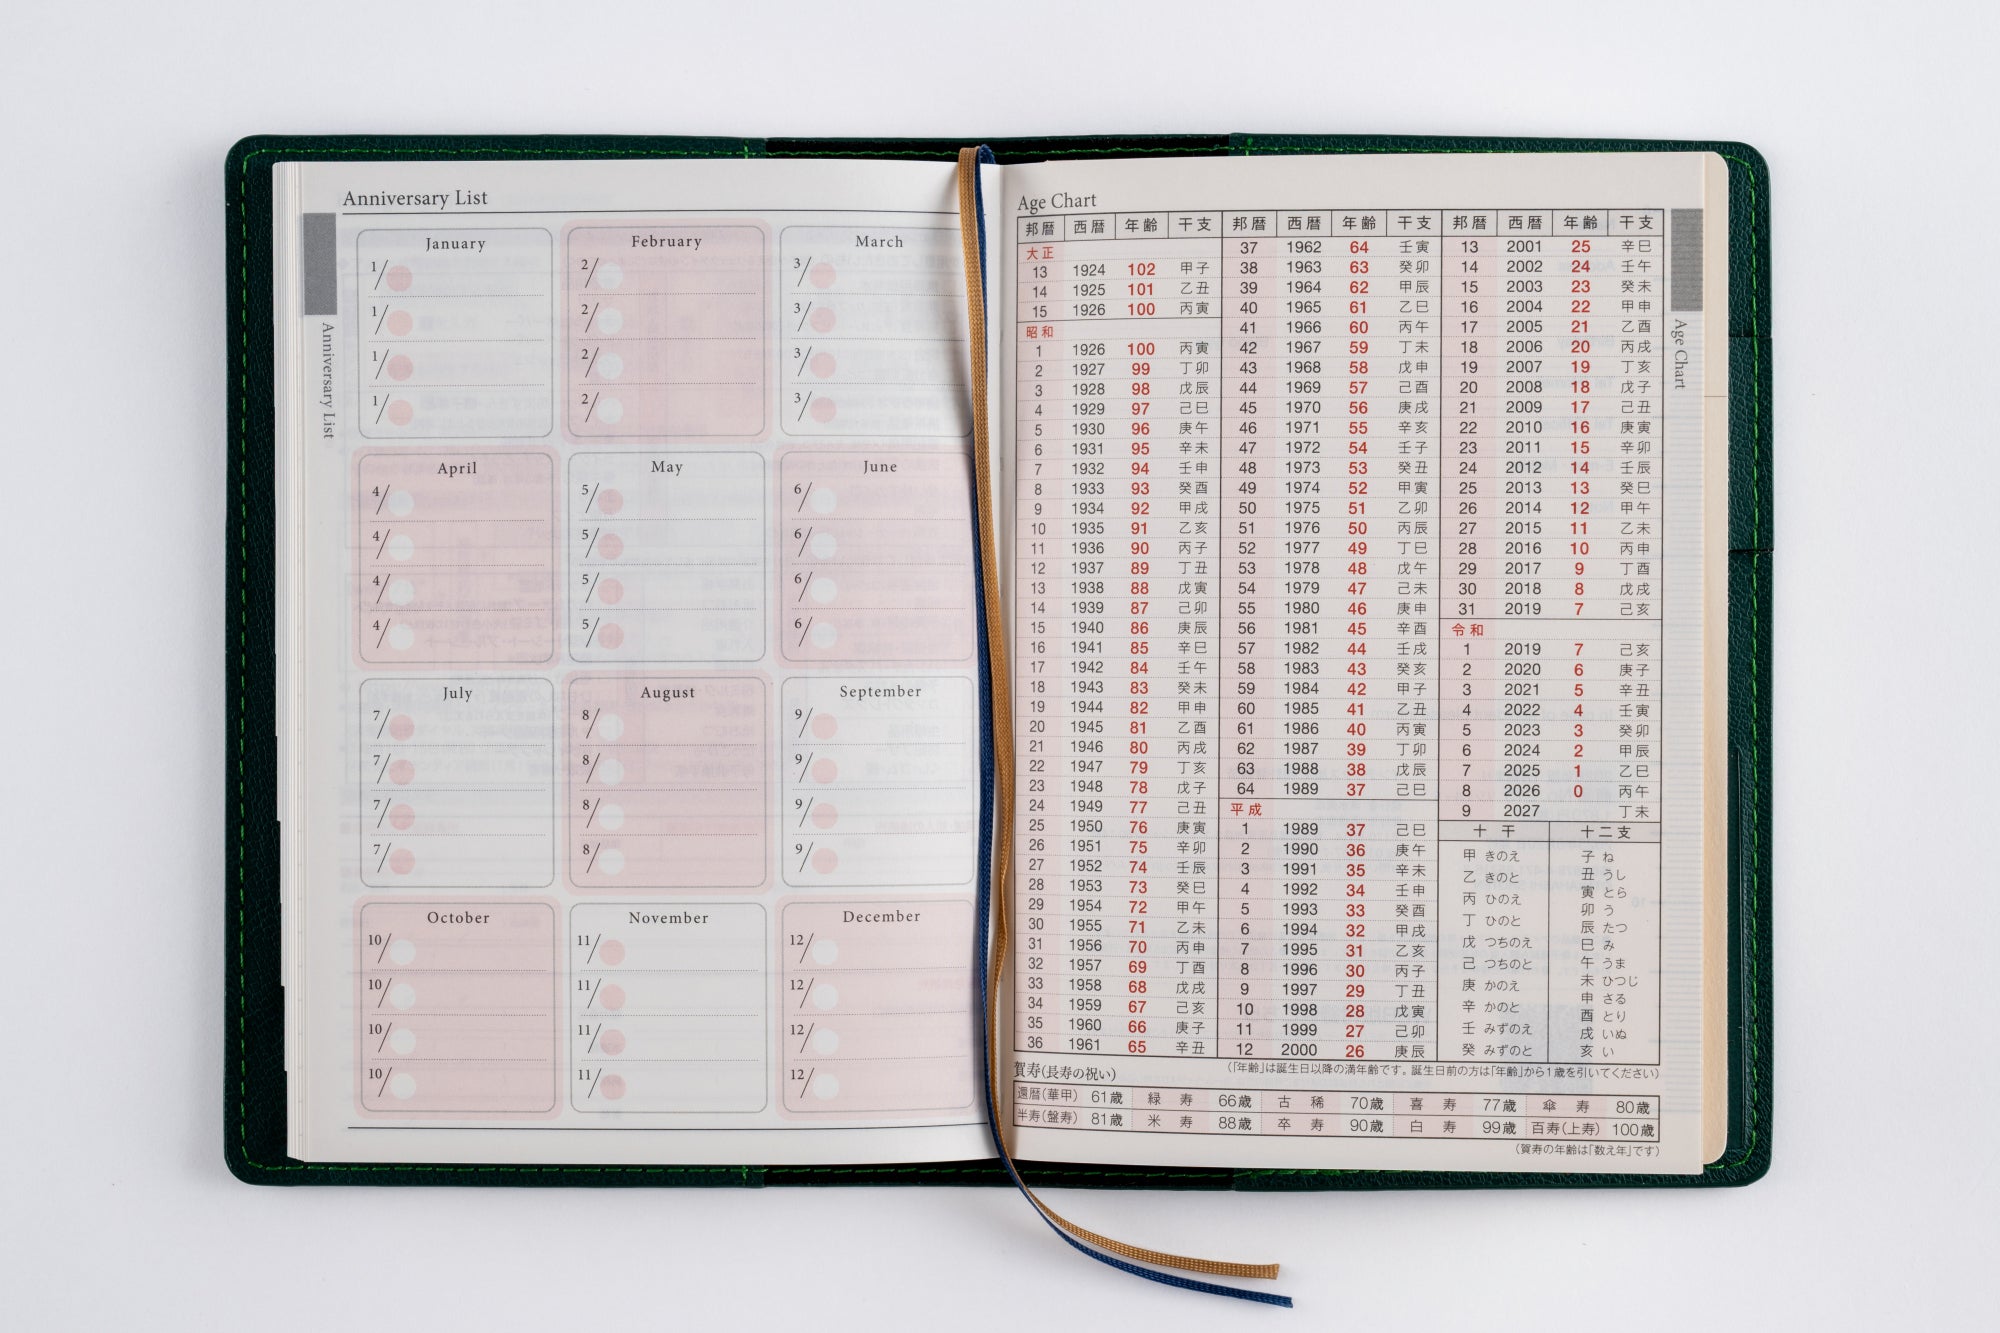 Anniversary List
Anniversary List
January
1/
1/
1/
1/
February
2/
2/
2/
2/
March
3/
3/
3/
3/
April
4/
4/
4/
4/
May
5/
5/
5/
5/
June
6/
6/
6/
6/
July
7/
7/
7/
7/
August
8/
8/
8/
8/
September
9/
9/
9/
9/
October
10/
10/
10/
10/
November
11/
11/
11/
11/
December
12/
12/
12/
12/
Age Chart
Age Chart
邦暦 西暦 年齢 干支
大正
13 1924 102 甲子
14 1925 101 乙丑
15 1926 100 丙寅
昭和
1 1926 100 丙寅
2 1927 99 丁卯
3 1928 98 戊辰
4 1929 97 己巳
5 1930 96 庚午
6 1931 95 辛未
7 1932 94 壬申
8 1933 93 癸酉
9 1934 92 甲戌
10 1935 91 乙亥
11 1936 90 丙子
12 1937 89 丁丑
13 1938 88 戊寅
14 1939 87 己卯
15 1940 86 庚辰
16 1941 85 辛巳
17 1942 84 壬午
18 1943 83 癸未
19 1944 82 甲申
20 1945 81 乙酉
21 1946 80 丙戌
22 1947 79 丁亥
23 1948 78 戊子
24 1949 77 己丑
25 1950 76 庚寅
26 1951 75 辛卯
27 1952 74 壬辰
28 1953 73 癸巳
29 1954 72 甲午
30 1955 71 乙未
31 1956 70 丙申
32 1957 69 丁酉
33 1958 68 戊戌
34 1959 67 己亥
35 1960 66 庚子
36 1961 65 辛丑
邦暦 西暦 年齢 干支
37 1962 64 壬寅
38 1963 63 癸卯
39 1964 62 甲辰
40 1965 61 乙巳
41 1966 60 丙午
42 1967 59 丁未
43 1968 58 戊申
44 1969 57 己酉
45 1970 56 庚戌
46 1971 55 辛亥
47 1972 54 壬子
48 1973 53 癸丑
49 1974 52 甲寅
50 1975 51 乙卯
51 1976 50 丙辰
52 1977 49 丁巳
53 1978 48 戊午
54 1979 47 己未
55 1980 46 庚申
56 1981 45 辛酉
57 1982 44 壬戌
58 1983 43 癸亥
59 1984 42 甲子
60 1985 41 乙丑
61 1986 40 丙寅
62 1987 39 丁卯
63 1988 38 戊辰
64 1989 37 己巳
平成
1 1989 37 己巳
2 1990 36 庚午
3 1991 35 辛未
4 1992 34 壬申
5 1993 33 癸酉
6 1994 32 甲戌
7 1995 31 乙亥
8 1996 30 丙子
9 1997 29 丁丑
10 1998 28 戊寅
11 1999 27 己卯
12 2000 26 庚辰
邦暦 西暦 年齢 干支
13 2001 25 辛巳
14 2002 24 壬午
15 2003 23 癸未
16 2004 22 甲申
17 2005 21 乙酉
18 2006 20 丙戌
19 2007 19 丁亥
20 2008 18 戊子
21 2009 17 己丑
22 2010 16 庚寅
23 2011 15 辛卯
24 2012 14 壬辰
25 2013 13 癸巳
26 2014 12 甲午
27 2015 11 乙未
28 2016 10 丙申
29 2017 9 丁酉
30 2018 8 戊戌
31 2019 7 己亥
令和
1 2019 7 己亥
2 2020 6 庚子
3 2021 5 辛丑
4 2022 4 壬寅
5 2023 3 癸卯
6 2024 2 甲辰
7 2025 1 乙巳
8 2026 0 丙午
9 2027 丁未
十干
甲 きのえ
乙 きのと
丙 ひのえ
丁 ひのと
戊 つちのえ
己 つちのと
庚 かのえ
辛 かのと
壬 みずのえ
癸 みずのと
十二支
子 ね
丑 うし
寅 とら
卯 う
辰 たつ
巳 み
午 うま
未 ひつじ
申 さる
酉 とり
戌 いぬ
亥 い
(「年齢」は誕生日以降の満年齢です。誕生日前の方は「年齢」から1歳を引いてください)
賀寿(長寿の祝い)
還暦(華甲) 61歳 緑寿 66歳 古稀 70歳 喜寿 77歳 傘寿 80歳
半寿(盤寿) 81歳 米寿 88歳 卒寿 90歳 白寿 99歳 百寿(上寿) 100歳
(賀寿の年齢は「数え年」です)